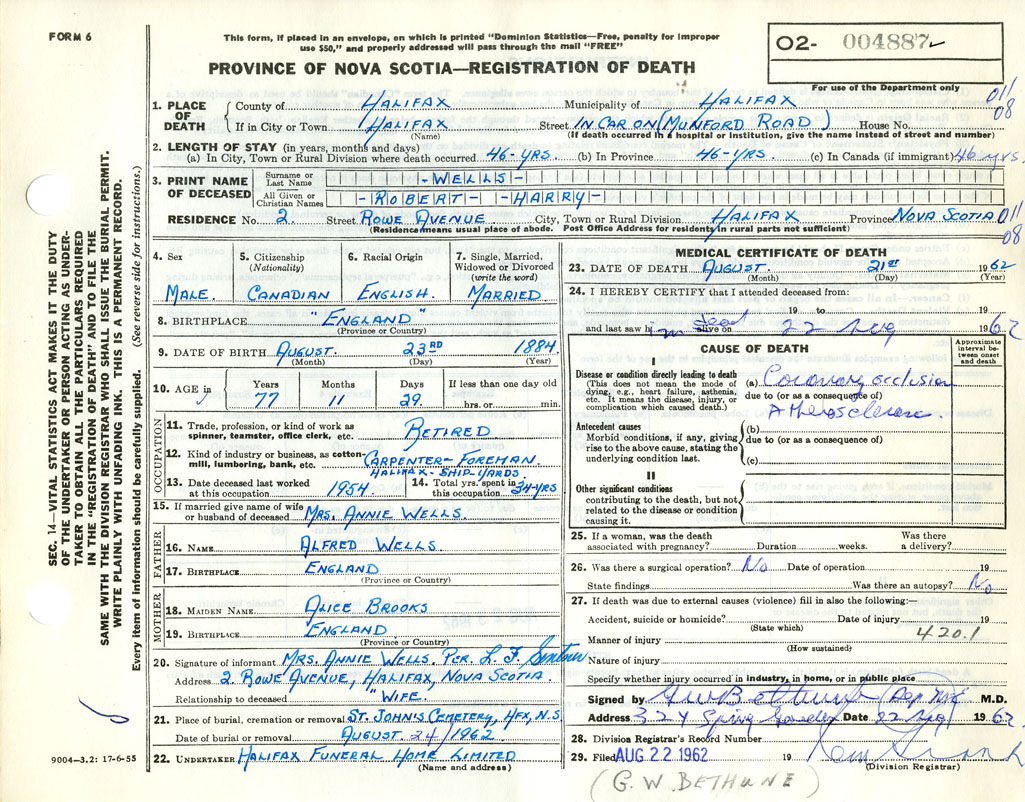 FORM 6
This form, if placed in an envelope, on which is printed "Dominion Statistics—Free, penalty for improper
use $50," and properly addressed will pass through the mail "FREE"
O2- 004887
PROVINCE OF NOVA SCOTIA—REGISTRATION OF DEATH
For use of the Department only
011
08
1. PLACE OF DEATH County of HALIFAX Municipality of HALIFAX
If in City or Town HALIFAX Street IN CAR ON (MUNFORD ROAD) House No.
(Name) (If death occurred in a hospital or institution, give the name instead of street and number)
2. LENGTH OF STAY (in years, months and days)
(a) In City, Town or Rural Division where death occurred 46-YRS. (b) In Province 46-YRS. (c) In Canada (if immigrant) 46 yrs.
3. PRINT NAME OF DECEASED Surname or Last Name -WELLS-
All Given or Christian Names -ROBERT- -HARRY-
RESIDENCE No. 2. Street ROWE AVENUE City, Town or Rural Division HALIFAX Province NOVA SCOTIA 011
08
(Residence means usual place of abode. Post Office Address for residents in rural parts not sufficient)
4. Sex
MALE.
5. Citizenship
(Nationality)
CANADIAN
6. Racial Origin
ENGLISH.
7. Single, Married,
Widowed or Divorced
(write the word)
MARRIED
8. BIRTHPLACE "ENGLAND"
(Province or Country)
9. DATE OF BIRTH AUGUST. 23RD 1884
(Month) (Day) (Year)
10. AGE in
Years Months Days If less than one day old
77 11 29. hrs. or min.
OCCUPATION
11. Trade, profession, or kind of work as
spinner, teamster, office clerk, etc. RETIRED
12. Kind of industry or business, as cotton-
mill, lumbering, bank, etc. CARPENTER-FOREMAN.
HALIFAX-SHIP-YARDS
13. Date deceased last worked
at this occupation 1954
14. Total yrs. spent in
this occupation 34-YRS
15. If married give name of wife
or husband of deceased MRS. ANNIE WELLS.
FATHER
16. NAME ALFRED WELLS.
17. BIRTHPLACE ENGLAND
(Province or Country)
MOTHER
18. MAIDEN NAME ALICE BROOKS
19. BIRTHPLACE ENGLAND
(Province or Country)
20. Signature of informant MRS. ANNIE WELLS. PER. L F.
Address 2. ROWE AVENUE, HALIFAX, NOVA SCOTIA.
Relationship to deceased "WIFE.
21. Place of burial, cremation or removal ST. JOHN'S CEMETERY, HFX, N.S
Date of burial or removal AUGUST 24/1962
22. UNDERTAKER HALIFAX FUNERAL HOME LIMITED
(Name and address)
MEDICAL CERTIFICATE OF DEATH
23. DATE OF DEATH AUGUST. 21st 1962
(Month) (Day) (Year)
24. I HEREBY CERTIFY that I attended deceased from:
19 to 19
and last saw him dead alive on 22 Aug 1962
CAUSE OF DEATH
Approximate
interval be-
tween onset
and death
I
Disease or condition directly leading to death
(This does not mean the mode of
dying, e.g., heart failure, asthenia,
etc. It means the disease, injury, or
complication which caused death.)
(a) Coronary occlusion
due to (or as a consequence of)
Atherosclerosis
Antecedent causes
Morbid conditions, if any, giving
rise to the above cause, stating the
underlying condition last.
(b)
due to (or as a consequence of)
(c)
II
Other significant conditions
contributing to the death, but not
related to the disease or condition
causing it.
25. If a woman, was the death
associated with pregnancy? Duration weeks.
Was there
a delivery?
26. Was there a surgical operation? No Date of operation 19
State findings Was there an autopsy? No
27. If death was due to external causes (violence) fill in also the following:—
Accident, suicide or homicide? Date of injury 19
(State which)
420.1
Manner of injury
(How sustained)
Nature of injury
Specify whether injury occurred in industry, in home, or in public place
Signed by GW Bethune (Dep M.E. M.D.
Address 324 Spring Garden Date 22 Aug 1962
28. Division Registrar's Record Number
29. Filed AUG 22 1962 19
(Division Registrar)
(G. W. BETHUNE)
SEC. 14—VITAL STATISTICS ACT MAKES IT THE DUTY
OF THE UNDERTAKER OR PERSON ACTING AS UNDER-
TAKER TO OBTAIN ALL THE PARTICULARS REQUIRED
IN THE "REGISTRATION OF DEATH" AND TO FILE THE
SAME WITH THE DIVISION REGISTRAR WHO SHALL ISSUE THE BURIAL PERMIT.
WRITE PLAINLY WITH UNFADING INK. THIS IS A PERMANENT RECORD.
Every item of information should be carefully supplied. (See reverse side for instructions.)
9004—3.2: 17-6-55